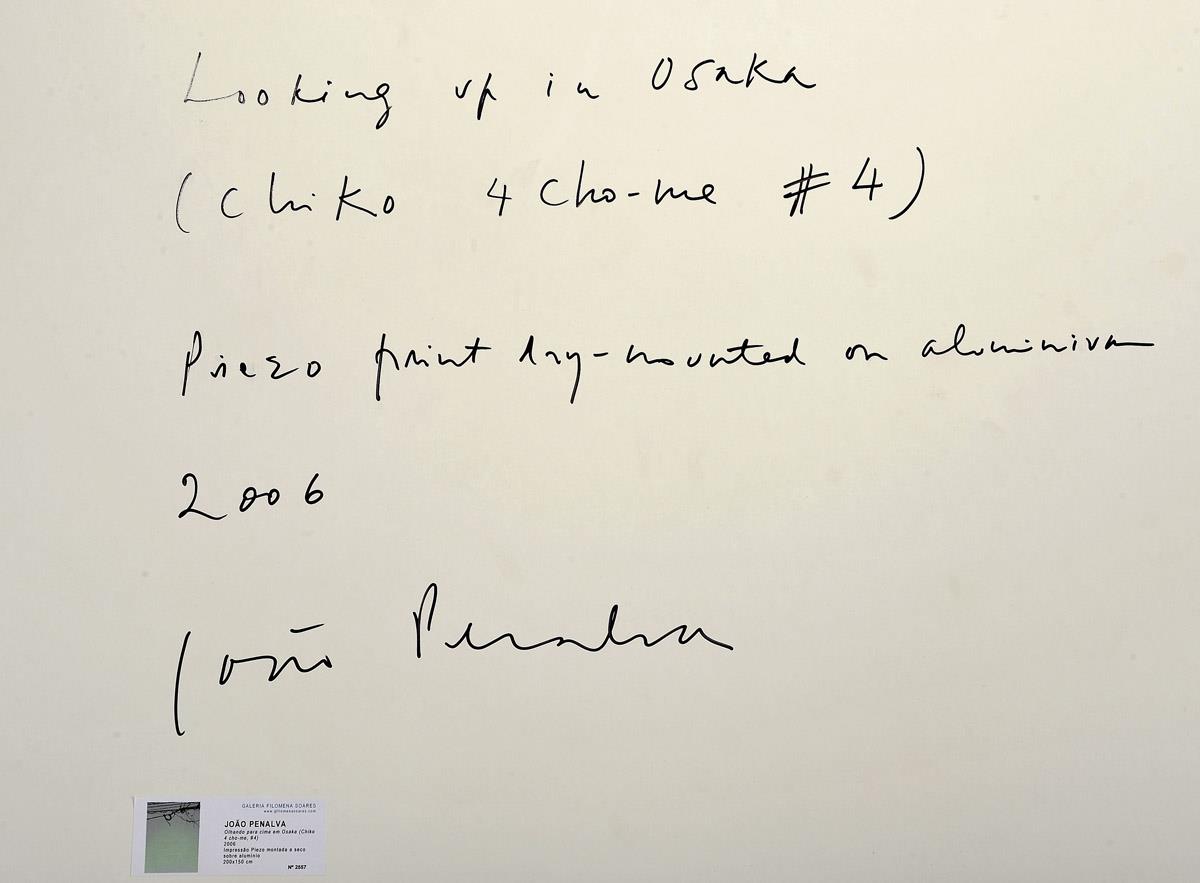 Looking up in Osaka
(Chiko 4 cho-me #4)
Piezo print dry-mounted on aluminium
2006
João Penalva
GALERIA FILOMENA SOARES
www.gfilomenasoares.com
JOÃO PENALVA
Olhando para cima em Osaka (Chiko
4 cho-me, #4)
2006
Impressão Piezo montada a seco
sobre alumínio
200x150 cm
Nº 2557